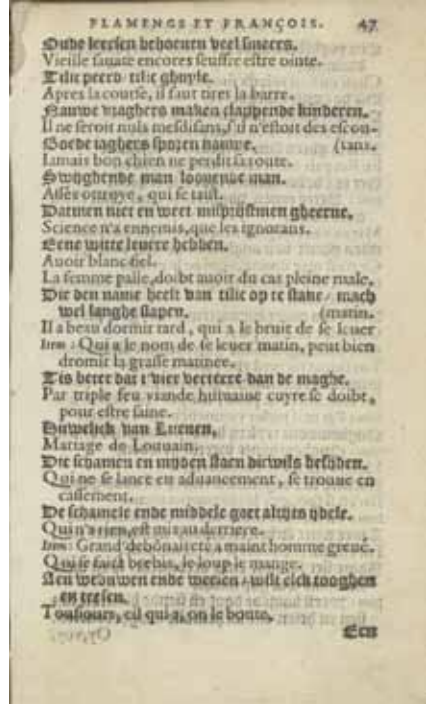 FLAMENGS ET FRANÇOIS. 47
Oude leersen behoeuen veel smeers.
Vieille sauate encores seuffre estre ointe.
Tilic peerd tilic ghuyle.
Apres la course, il faut tirer la barre.
Nauwe vraghers maken clappende kinderen.
Il ne seroit nuls mesdisans, s'il n'estoit des escou-
Goede iaghers sporen nauwe. (tans.
Iamais bon chien ne perdit sa route.
Swijghende man loouende man.
Assés ottroye, qui se taist.
Datmen niet en weet misprijstmen gheerne.
Science n'a ennemis, que les ignorans.
Eene witte leuere hebben.
Auoir blanc fiel.
La femme palle, doibt auoir du cas pleine male.
Die den name heeft van tilic op te stane / mach
wel langhe slapen. (matin.
Il a beau dormir tard, qui a le bruit de se leuer
Item: Qui a le nom de se leuer matin, peut bien
dromir la grasse matinee.
Tis beter dat t'vier verteere dan de maghe.
Par triple feu viande humaine cuyre se doibt,
pour estre saine.
Huwelick van Luenen,
Mariage de Louuain.
Die schamen en mijden staen dicwils besijden.
Qui ne se lance en aduancement, se trouue en
cassement.
De schamele ende middele gaet altijts ydele.
Qui n'a rien, est mis au derriere.
Item: Grand' debonaireté a maint homme greué.
Qui se faict brebis, le loup le mange.
Aen weduwen ende weesen, wilt elck tooghen
en
Tousiours, cil qui a, on le boute,
Een